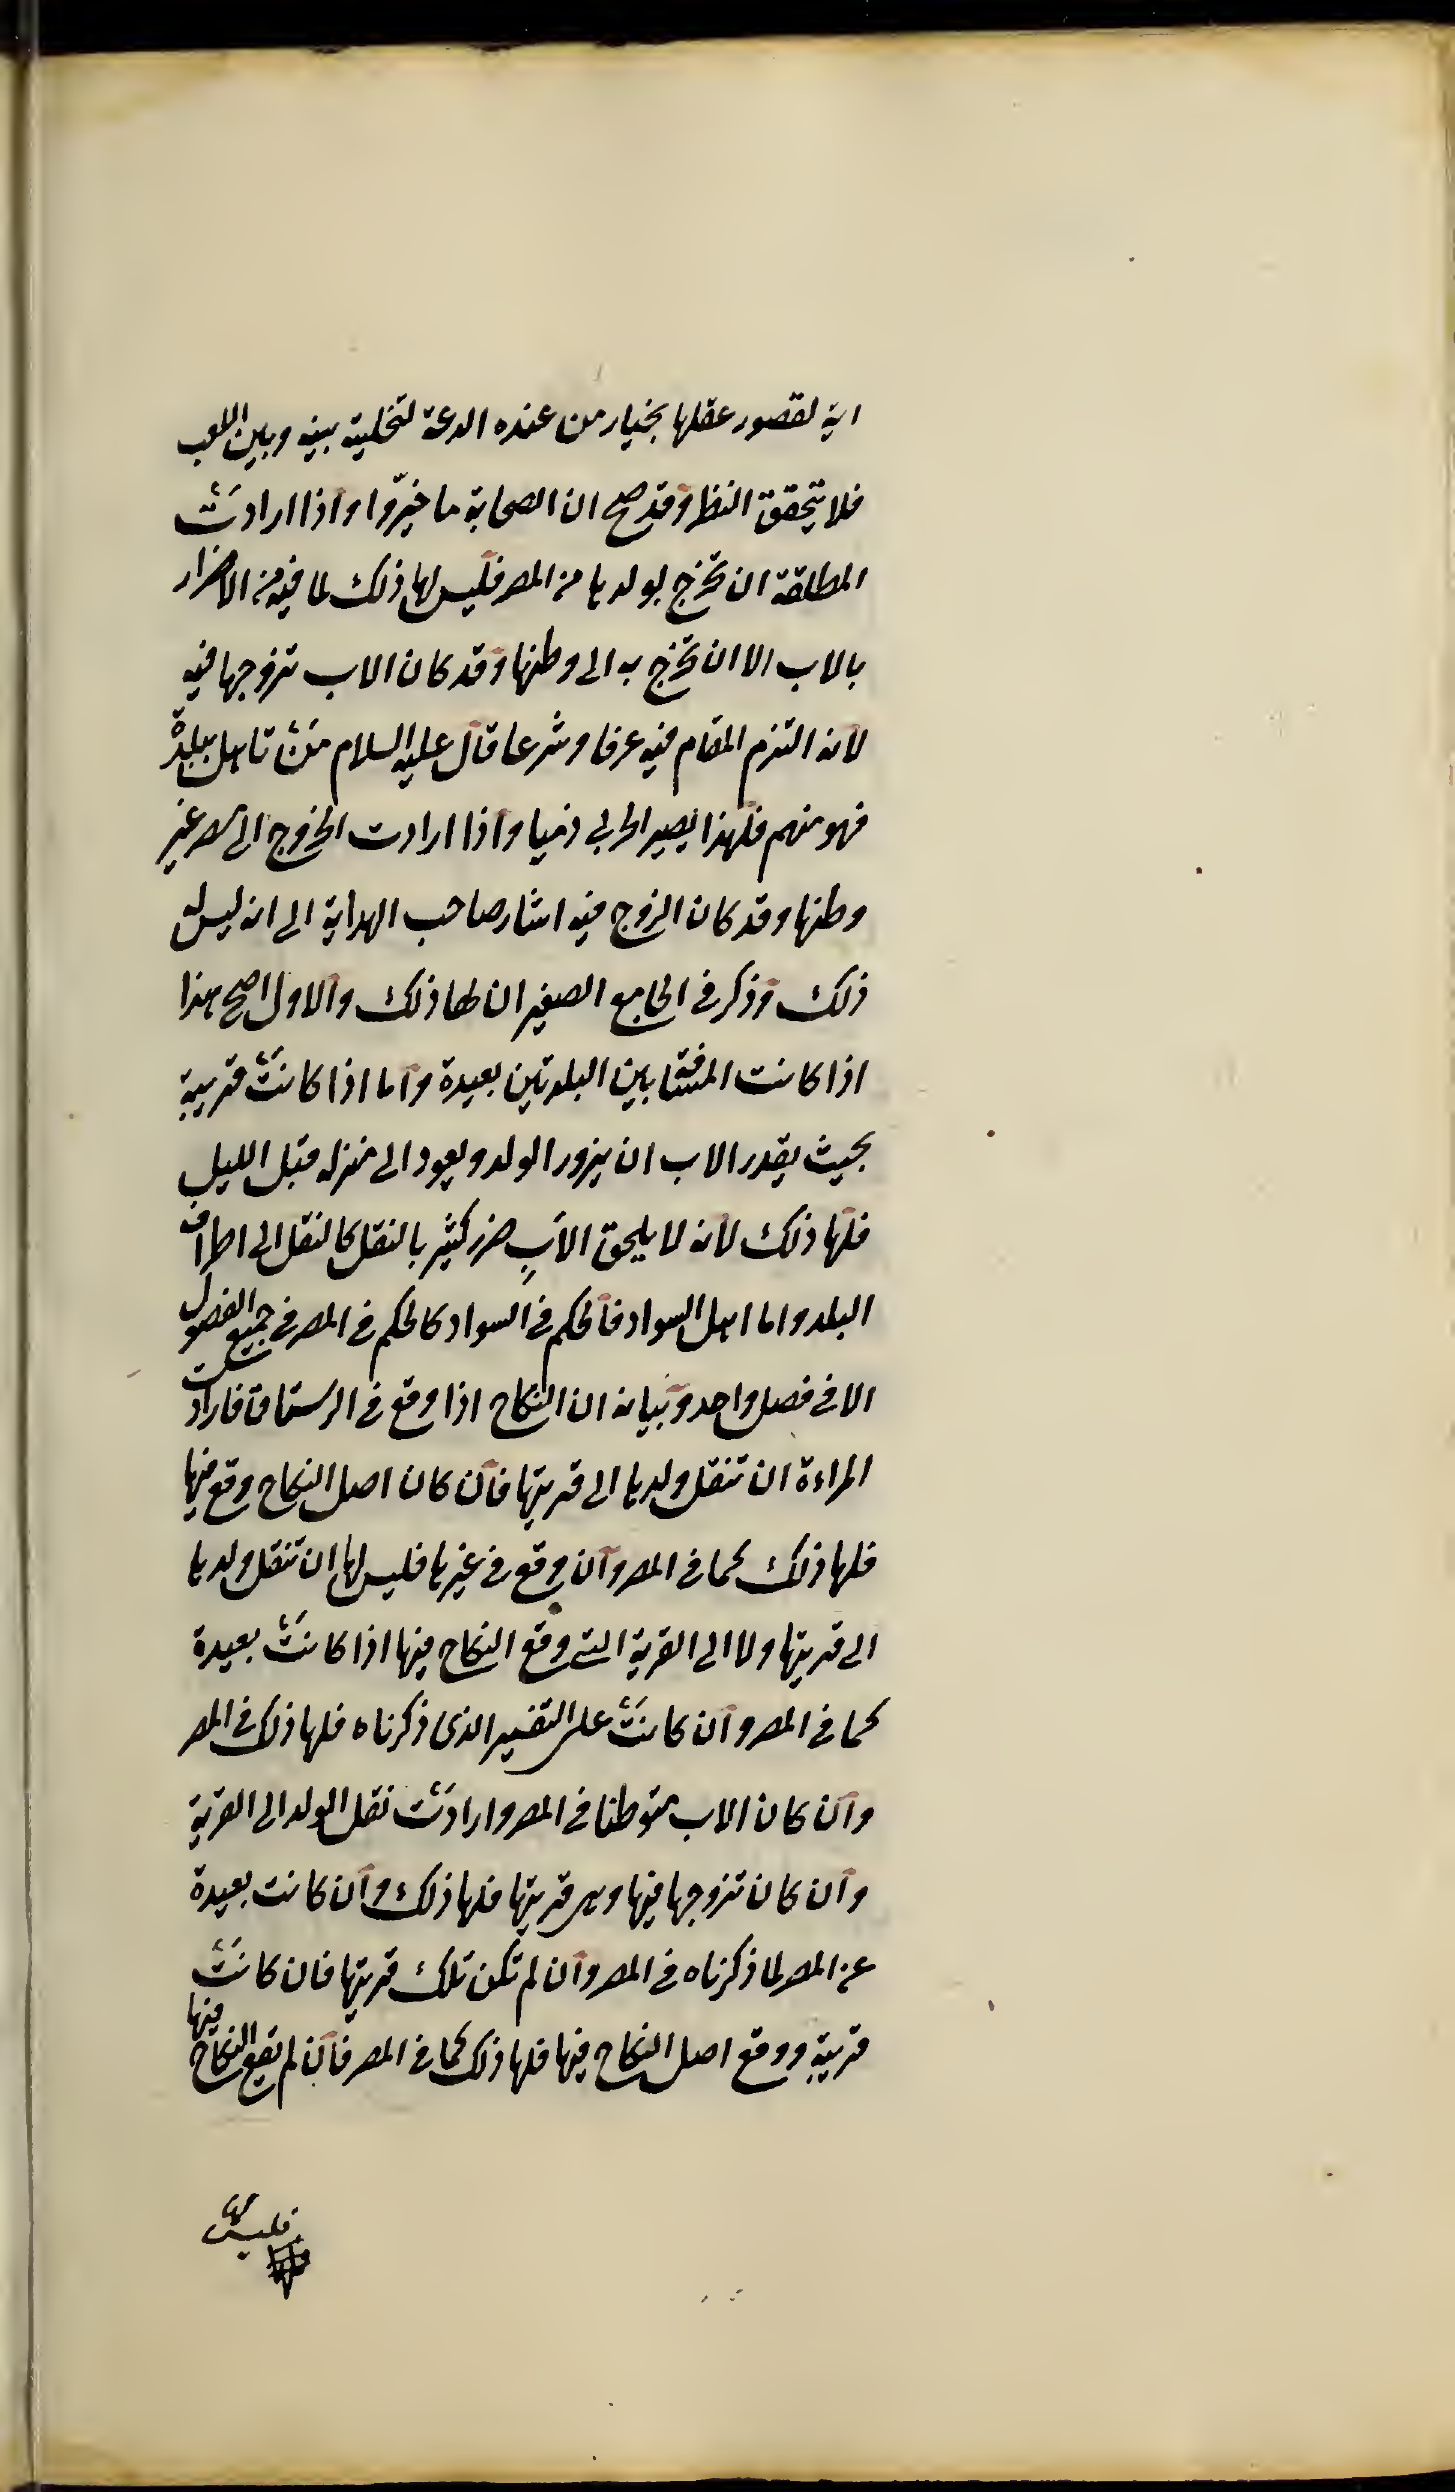 انه لقصور عقلها يختار من عنده الدعة لتخلية بينه وبين اللعب
فلا يتحقق النظر وقد صح ان الصحابة ما خيّروا واذا ارادت
المطلقة ان تخرج بولدها من المصر فليس لها ذلك لما فيه من الاضرار
بالاب الا ان تخرج به الى وطنها وقد كان الاب تزوجها فيه
لانه التزم المقام فيه عرفا وشرعا قال عليه السلام من تاهل ببلدة
فهو منهم فلهذا يصير الحربي ذميا واذا ارادت الخروج الى مصر غير
وطنها وقد كان الزوج فيه اشار صاحب الهداية الى انه ليس له
ذلك وذكر في الجامع الصغير ان لها ذلك والاول اصح هذا
اذا كانت المسافة بين البلدتين بعيدة واما اذا كانت قريبة
بحيث يقدر الاب ان يزور الولد ويعود الى منزله قبل الليل
فلها ذلك لانه لا يلحق الاب ضرر كثير بالنقل كالنقل الى اطراف
البلد واما اهل السواد فالحكم في السواد كالحكم في المصر في جميع الفصول
الا في فصل واحد وبيانه ان النكاح اذا وقع في الرستاق فارادت
المراءة ان تنقل ولدها الى قريتها فان كان اصل النكاح وقع فيها
فلها ذلك كما في المصر وان وقع في غيرها فليس لها ان تنقل ولدها
الى قريتها ولا الى القرية التي وقع النكاح فيها اذا كانت بعيدة
كما في المصر وان كانت على التفسير الذي ذكرناه فلها ذلك في المصر
وان كان الاب متوطنا في المصر وارادت نقل الولد الى القرية
وان كان تزوجها فيها وهي قريتها فلها ذلك وان كانت بعيدة
عن المصر لما ذكرناه في المصر وان لم تكن تلك قريتها فان كانت
قريبة ووقع اصل النكاح فيها فلها ذلك كما في المصر فان لم يقع النكاح فيها
فليس لها